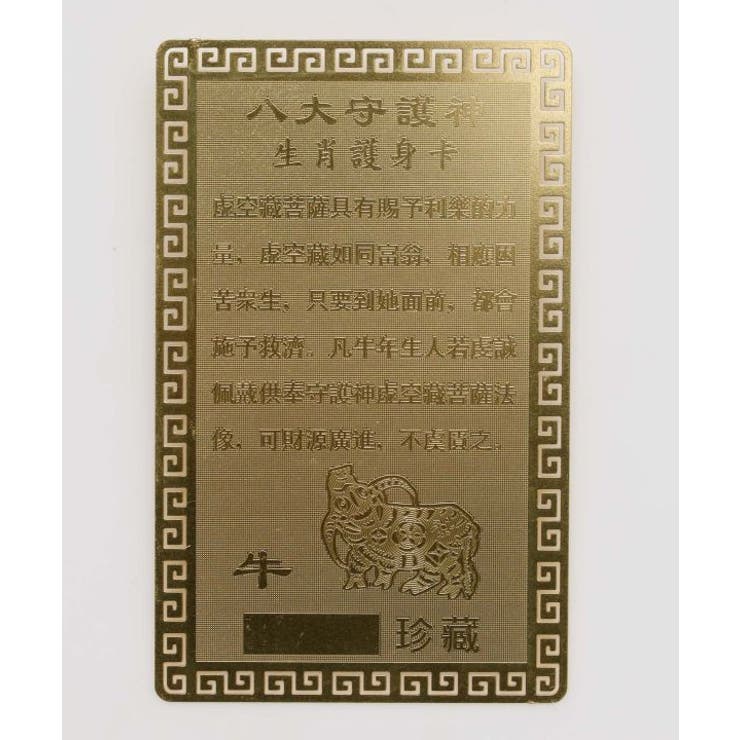 八大守護神
生肖護身卡
虛空藏菩薩具有賜予利樂的力
量，虛空藏如同富翁，相應困
苦衆生，只要到她面前，都會
施予救濟。凡牛年生人若虔誠
佩戴供奉守護神虛空藏菩薩法
像，可財源廣進，不虞匱乏。
牛
珍藏